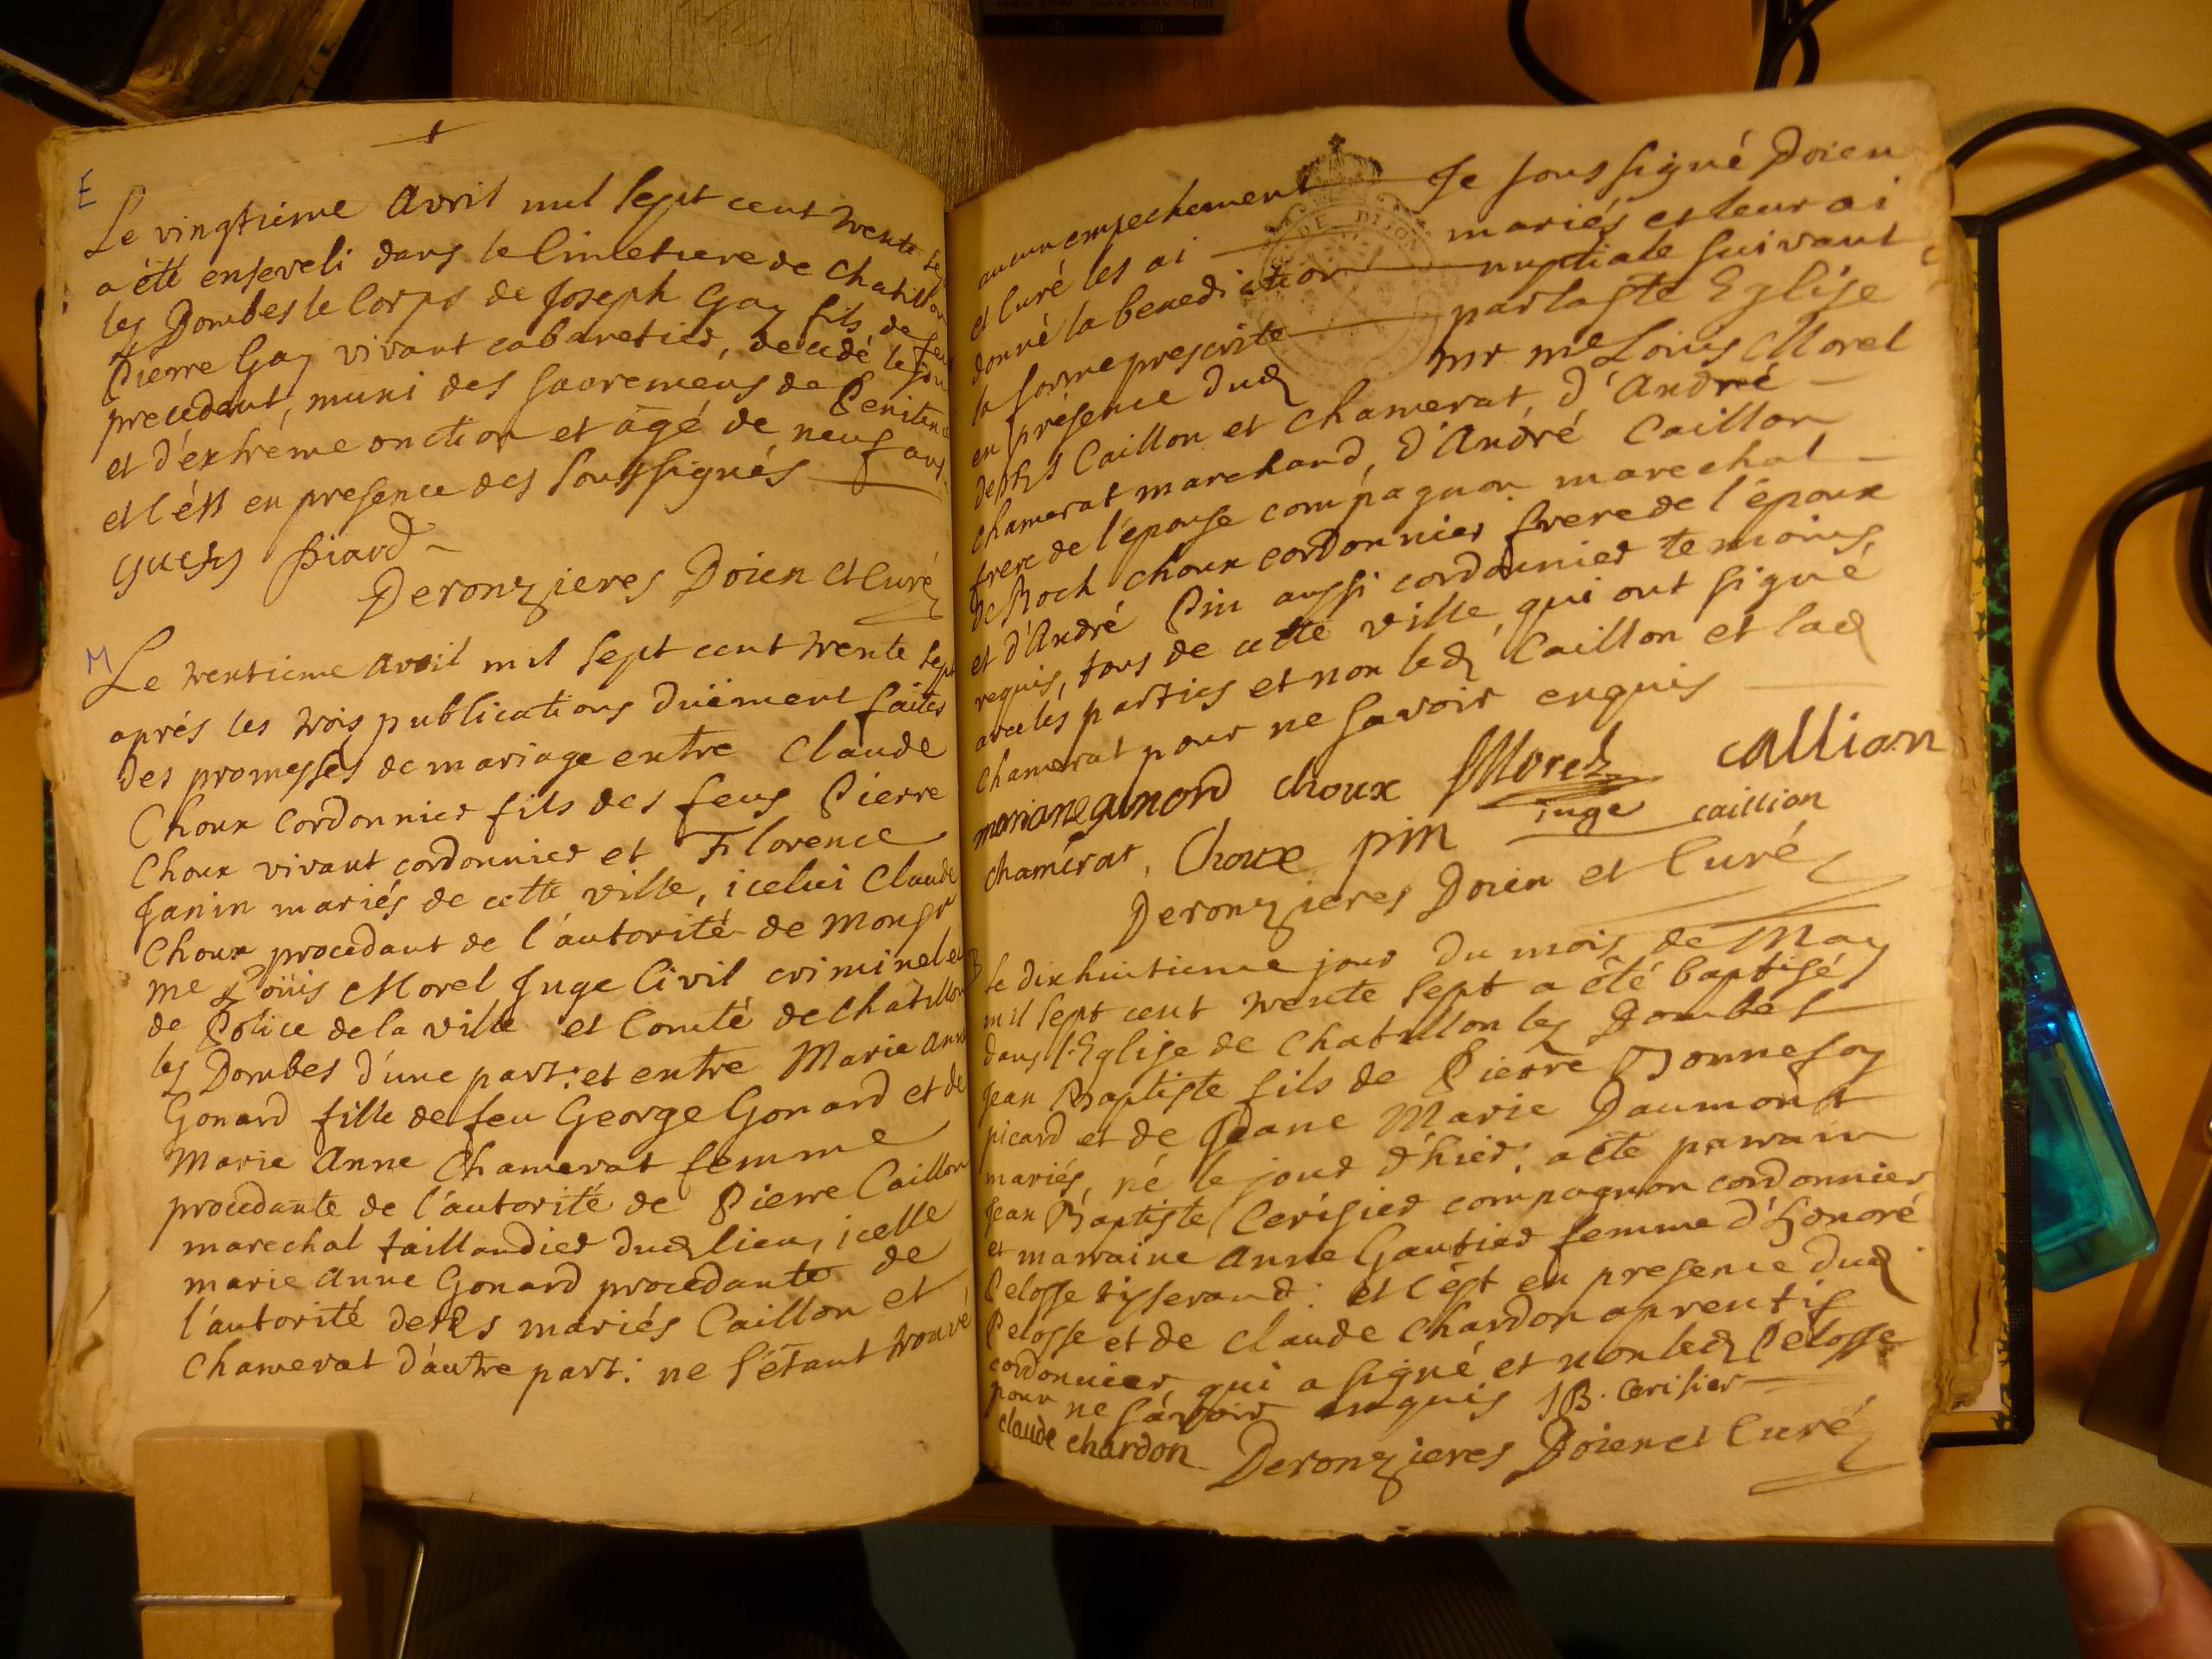 E
Le vingtieme avril mil sept cent trente sept
a été enseveli dans le Cimetiere de Chatillon
les Dombes le corps de Joseph Gay fils de feu
Pierre Gay vivant cabaretier, decedé le jour
precedent, muni des sacremens de Penitence
et d'éxtréme onction et agé de neuf ans
et c'est en presence des soussignés
Piard
Deronzieres Doien et Curé
M
Le trentieme avril mil sept cent trente sept
aprés les trois publications duëment faites
des promesses de mariage entre Claude
Choux cordonnier fils des feus Pierre
Choux vivant cordonnier et Florence
Janin mariés de cette ville, icelui Claude
Choux procedant de l'autorité de Monsr
Me Loüis Morel Juge Civil criminel et
de Police de la ville et Comté de Chatillon
les Dombes d'une part: et entre Marie Anne
Gonard fille de feu George Gonard et de
Marie Anne Chamerat femme
procedante de l'autorité de Pierre Caillon
marechal taillandier dud lieu, icelle
marie Anne Gonard procedante de
l'autorité desds mariés Caillon et
Chamerat d'autre part: ne s'étant trouvé
aucun empechement Je soussigné Doien
et Curé les ai mariés et leur ai
donné la benediction nuptiale suivant
DE DIJON
la forme prescrite par la Ste Eglise
en présence dud mr me Louis Morel
desds Caillon et Chamerat, d'André
Chamerat marchand, d'André Caillon
frere de l'épouse compagnon marechal
de Roch choux cordonnier frere de l'époux
et d'André Pin aussi cordonnier temoins,
requis, tous de cette ville, qui ont signé
avec les parties et non led Caillon et lad
Chamerat pour ne savoir enquis
mariane gonord choux Morel callion
chamérat, Choux pin juge caillion
Deronzieres Doien et Curé
B
Le dixhuitieme jour du mois de May
mil sept cent trente sept a été baptisé
dans l'Eglise de Chatillon les Dombes
Jean Baptiste fils de Pierre Bonnefoy
picard et de Jeane Marie Daumont
mariés, né le jour d'hier; a été parrain
Jean Baptiste Cerisier compagnon cordonnier
et marraine Anne Gautier femme d'Honoré
Pelosse tisserand: et c'est en presence dud
Pelosse et de Claude Chardon aprentif
cordonnier, qui a signé et non led Pelosse
pour ne sávoir enquis JB. Cerisier
claude chardon Deronzieres Doien et Curé